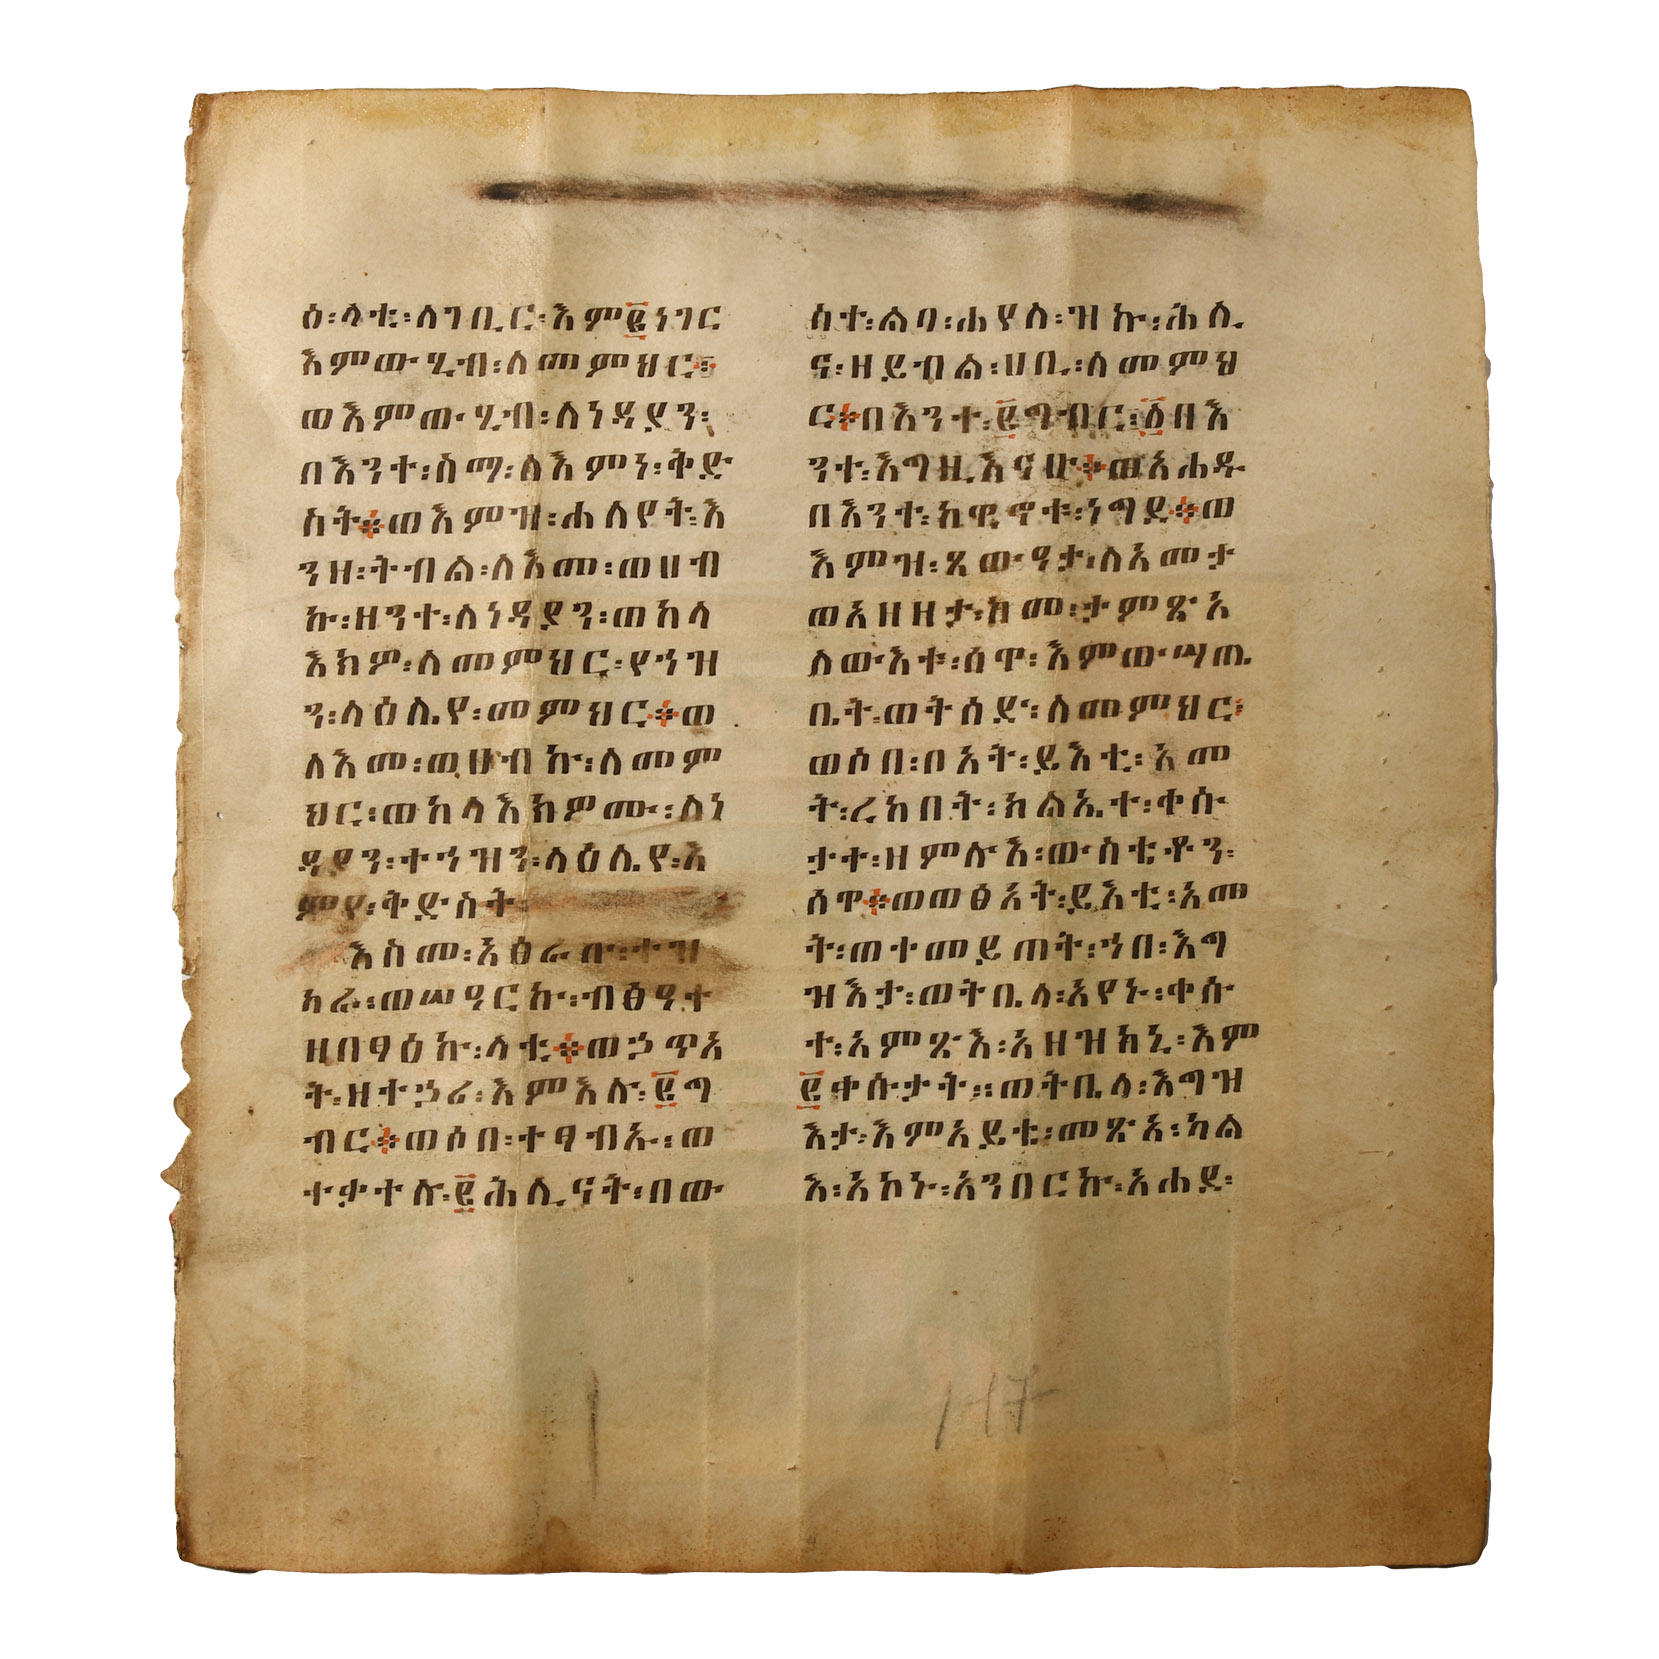 ዕ፡ላቲ፡ለገቢር፡እም፪ነገር
እምውሂብ፡ለመምህር፨
ወእምውሂብ፡ለነዳያን፡
በእንተ፡ስማ፡ለእምነ፡ቅድ
ስት፨ወእምዝ፡ሐለየት፡እ
ንዘ፡ትብል፡ለእመ፡ወሀብ
ኩ፡ዘንተ፡ለነዳያን፡ወከላ
እክዎ፡ለመምህር፡የኀዝ
ን፡ላዕሌየ፡መምህር፨ወ
ለእመ፡ወሀብኩ፡ለመም
ህር፡ወከላእክዎሙ፡ለነ
ዳያን፡ተኀዝን፡ላዕሌየ፡እ
ምየ፡ቅድስት፡
እስመ፡አፅራሡ፡ተዝ
ካራ፡ወሠዓርኩ፡ብፅዓተ
ዘበፃዕኩ፡ላቲ፨ወኃጥአ
ት፡ዘተኃሪ፡እምእሉ፡፪ግ
ብር፨ወሶበ፡ተፃብኡ፡ወ
ተቃተሉ፡፪ሕሊናት፡በው
ስተ፡ልባ፡ሐየሰ፡ዝኩ፡ሕሊ
ና፡ዘይብል፡ሀቢ፡ለመምህ
ር፨በእንተ፡፪ግብር፡፩በእ
ንተ፡እግዚእናሁ፨ወአሐዱ
በእንተ፡ከዊኖቱ፡ነግደ፨ወ
እምዝ፡ጼውዓታ፡ለአመታ
ወአዘዘታ፡ከመ፡ታምጽአ
ለውእቱ፡ሰዋ፡እምውሣጤ
ቤት፡ወትሰደ፡ለመምህር፡
ወሶበ፡ቦአት፡ይእቲ፡አመ
ት፡ረከበት፡ክልኤተ፡ቀሱ
ታተ፡ዘምሉእ፡ውስቴቶን፡
ሰዋ፨ወወፅአት፡ይእቲ፡አመ
ት፡ወተመይጠት፡ኀበ፡እግ
ዝእታ፡ወትቤላ፡አየኑ፡ቀሱ
ተ፡አምጽእ፡አዘዝክኒ፡እም
፪ቀሱታት።ወትቤላ፡እግዝ
እታ፡እምአይቴ፡መጽአ፡ካል
እ፡አኮኑ፡አንበርኩ፡አሐደ፡